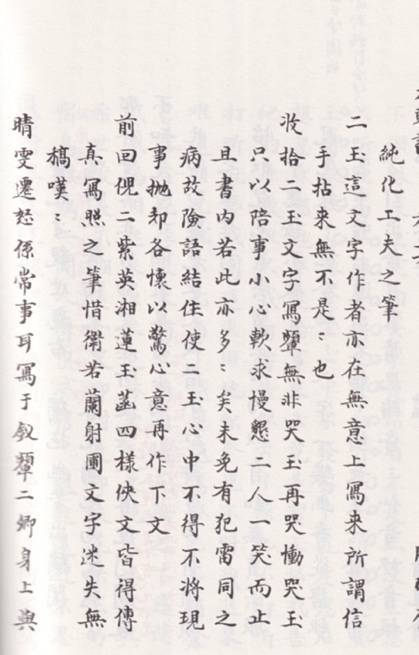 純化工夫之筆
二玉這文字作者亦在無意上寫来所謂信
手拈来無不是〻也
收拾二玉文字寫顰無非哭玉再哭慟哭玉
只以陪事小心軟求慢懇二人一笑而止
且書内若此亦多〻矣未免有犯雷同之
病故險語結住使二玉心中不得不將現
事抛却各懷以驚心意再作下文
前回倪二紫英湘蓮玉菡四樣俠文皆得傳
真寫照之筆惜衛若蘭射圃文字迷失無
稿嘆〻
晴雯遷怒係常事耳寫于釵顰二卿身上與